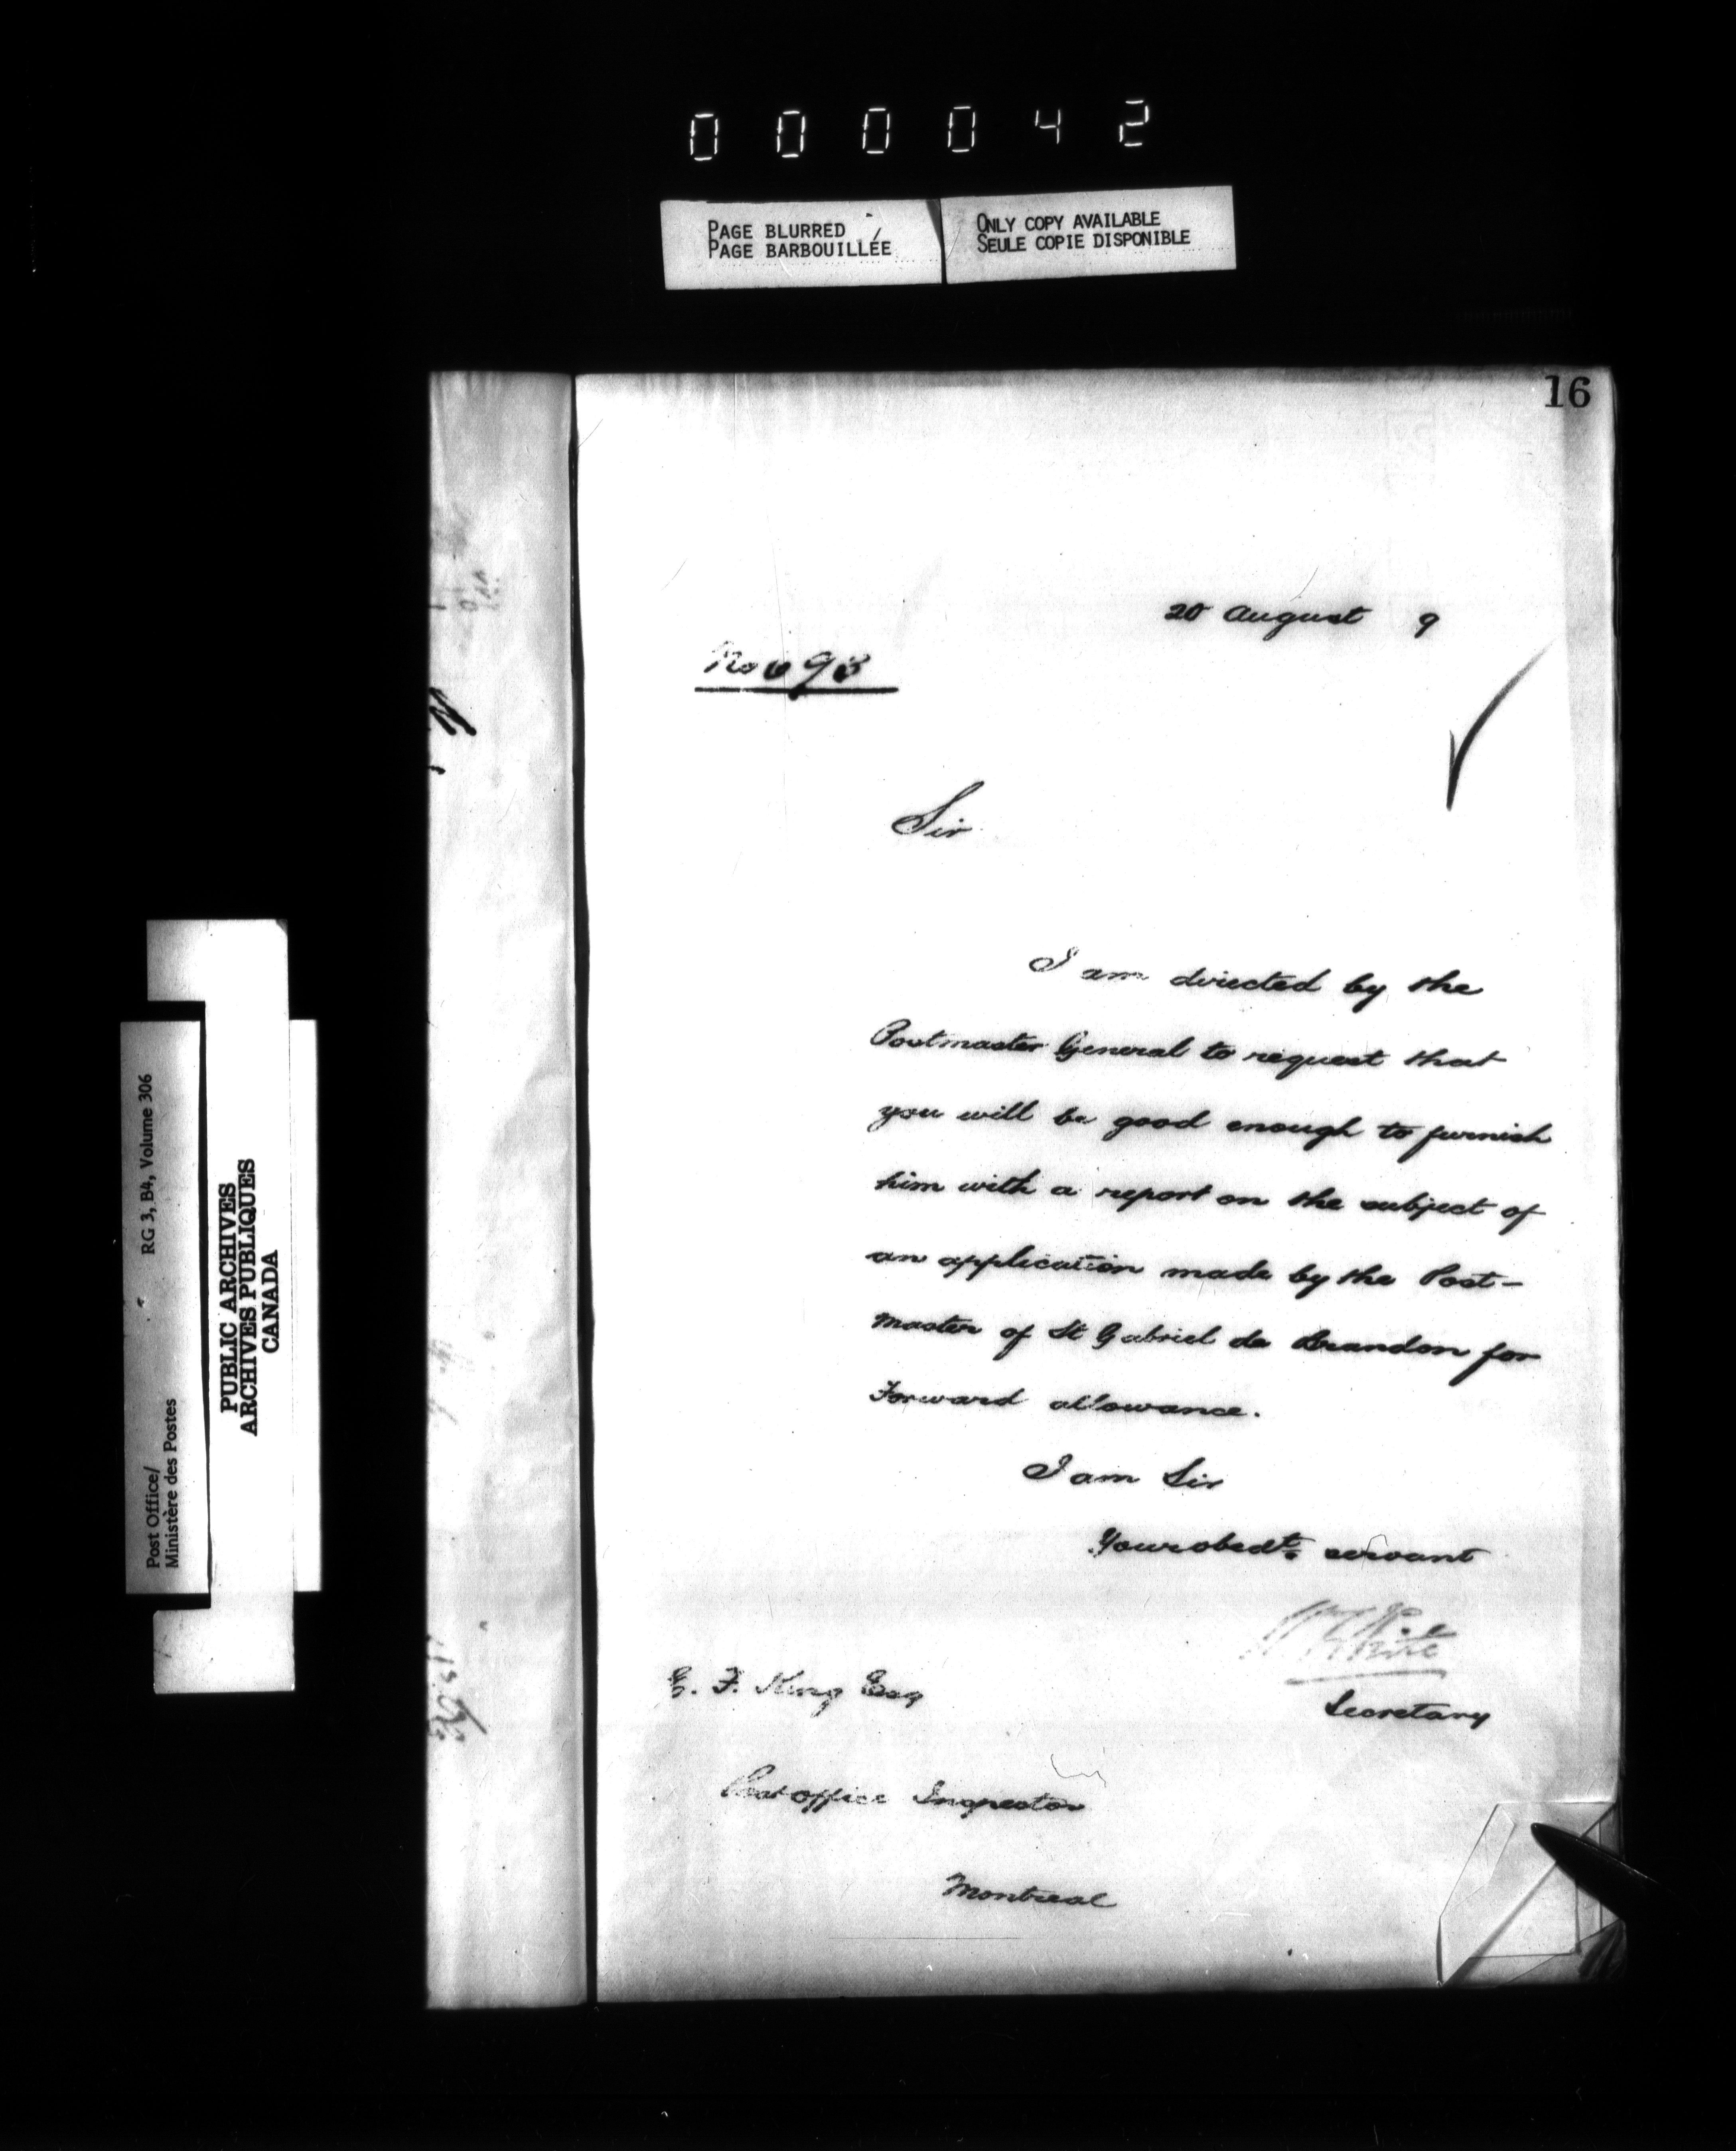 000042
PAGE BLURRED
PAGE BARBOUILLÉE
ONLY COPY AVAILABLE
SEULE COPIE DISPONIBLE
16
20 August 9
No 693
Sir
I am directed by the
Postmaster General to request that
you will be good enough to furnish
him with a report on the subject of
an application made by the Post-
master of St Gabriel de Brandon for
Forward allowance.
I am Sir
Your obedt. servant
White
Secretary
E. F. King Esq
Post office Inspector
Montreal
Post Office/
Ministère des Postes
RG 3, B4, Volume 306
PUBLIC ARCHIVES
ARCHIVES PUBLIQUES
CANADA